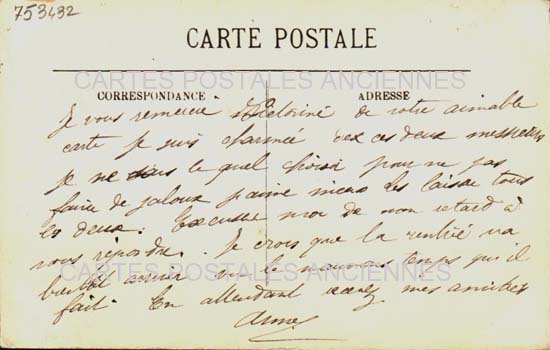 753432
CARTE POSTALE
CARTES POSTALES ANCIENNES
CORRESPONDANCE ADRESSE
Je vous remercie Victorine de votre aimable
carte je suis charmée ces deux messieurs
je ne sais le quel choisir pour ne pas
faire de jaloux j'aime mieux les laisser tous
les deux. Excusse moi de mon retard à
vous répondre. Je crois que la rentrée va
bientôt arriver le mauvais temps qu'il
CARTES POSTALES ANCIENNES
fait. En attendant mes amitiés